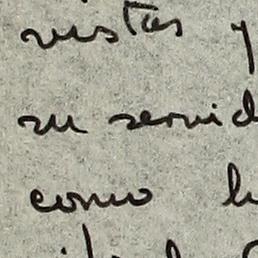 vistas y
su servid
como